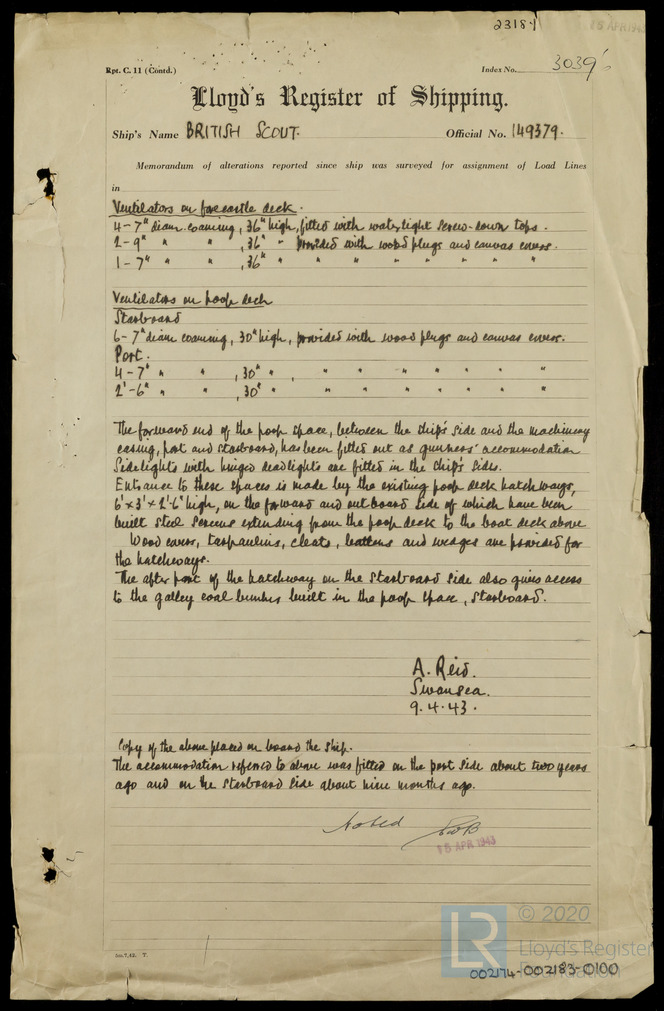 23184
15 APR 1943
Rpt. C. 11 (Contd.)
Index No. 30396
Lloyd's Register of Shipping.
Ship's Name BRITISH SCOUT. Official No. 149379.
Memorandum of alterations reported since ship was surveyed for assignment of Load Lines
in
Ventilators on forecastle deck.
4 - 7" diam coaming, 36" high, fitted with watertight screw-down tops.
2 - 9" " " , 36" " provided with wood plugs and canvas covers.
1 - 7" " " , 36" " " " " " " " "
Ventilators on poop deck
Starboard
6 - 7" diam coaming, 30" high, provided with wood plugs and canvas covers.
Port.
4 - 7" " " , 30" " , " " " " " " "
2 - 6" " " , 30" " " " " " " " "
The forward end of the poop space, between the ship's side and the machinery
casing, port and starboard, has been fitted out as gunners' accommodation
Sidelights with hinged deadlights are fitted in the ship's sides.
Entrance to these spaces is made by the existing poop deck hatchways,
6' x 3' x 2'-6" high, on the forward and outboard side of which have been
built steel screens extending from the poop deck to the boat deck above
Wood covers, tarpaulins, cleats, battens and wedges are provided for
the hatchways.
The after part of the hatchway on the starboard side also gives access
to the galley coal bunker built in the poop space, starboard.
A. Reid.
Swansea.
9.4.43.
Copy of the above placed on board the ship.
The accommodation referred to above was fitted on the port side about two years
ago and on the starboard side about nine months ago.
Noted
15 APR 1943
5m.7,42. T.
© 2020
LR
Lloyd's Register
Foundation
002174-002183-0100